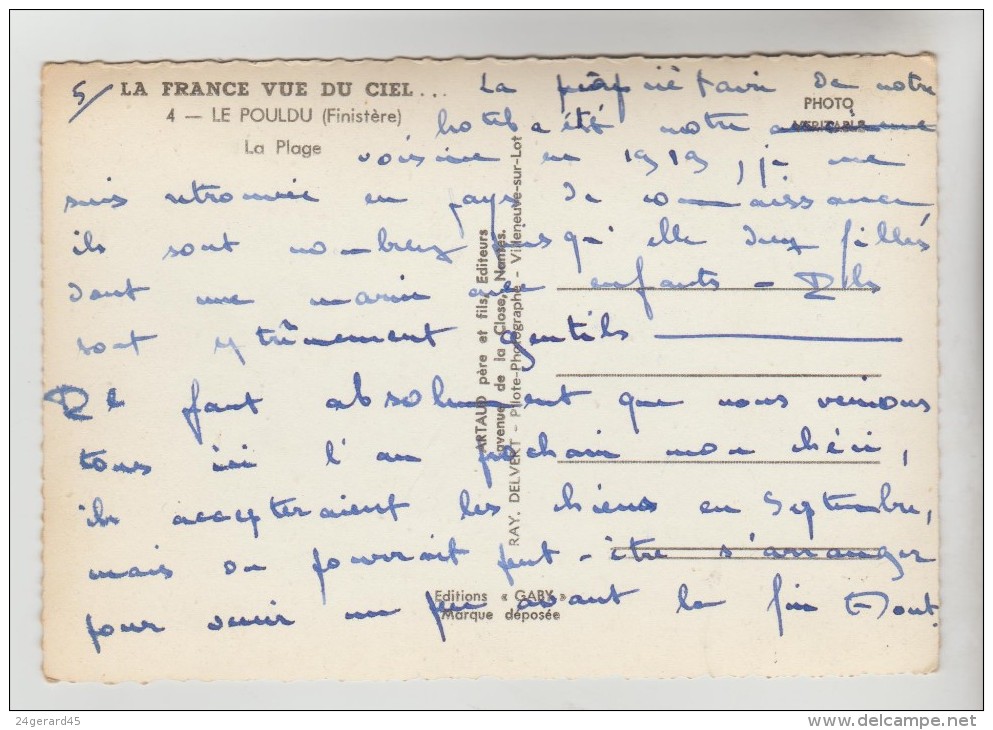 5/ LA FRANCE VUE DU CIEL...
4 — LE POULDU (Finistère)
La Plage
PHOTO
VERITABLE
La propriétaire de notre
hotel a été notre
voisine en 1919, je me
suis retrouvée en pays de connaissance
ils sont nombreux puisqu'elle deux filles
dont une mariée avec enfants - Ils
sont extrêmement gentils
Il faut absolument que nous venions
tous ici l'an prochain mon chéri,
ils accepteraient les chiens en Septembre,
mais on pourrait peut-être s'arranger
pour venir un peu avant la fin Aout.
ARTAUD père et fils, Editeurs
avenue de la Close, Nantes.
RAY. DELVERT - Pilote-Photographe - Villeneuve-sur-Lot
Editions « GABY »
Marque déposée
24gerard45
www.delcampe.net